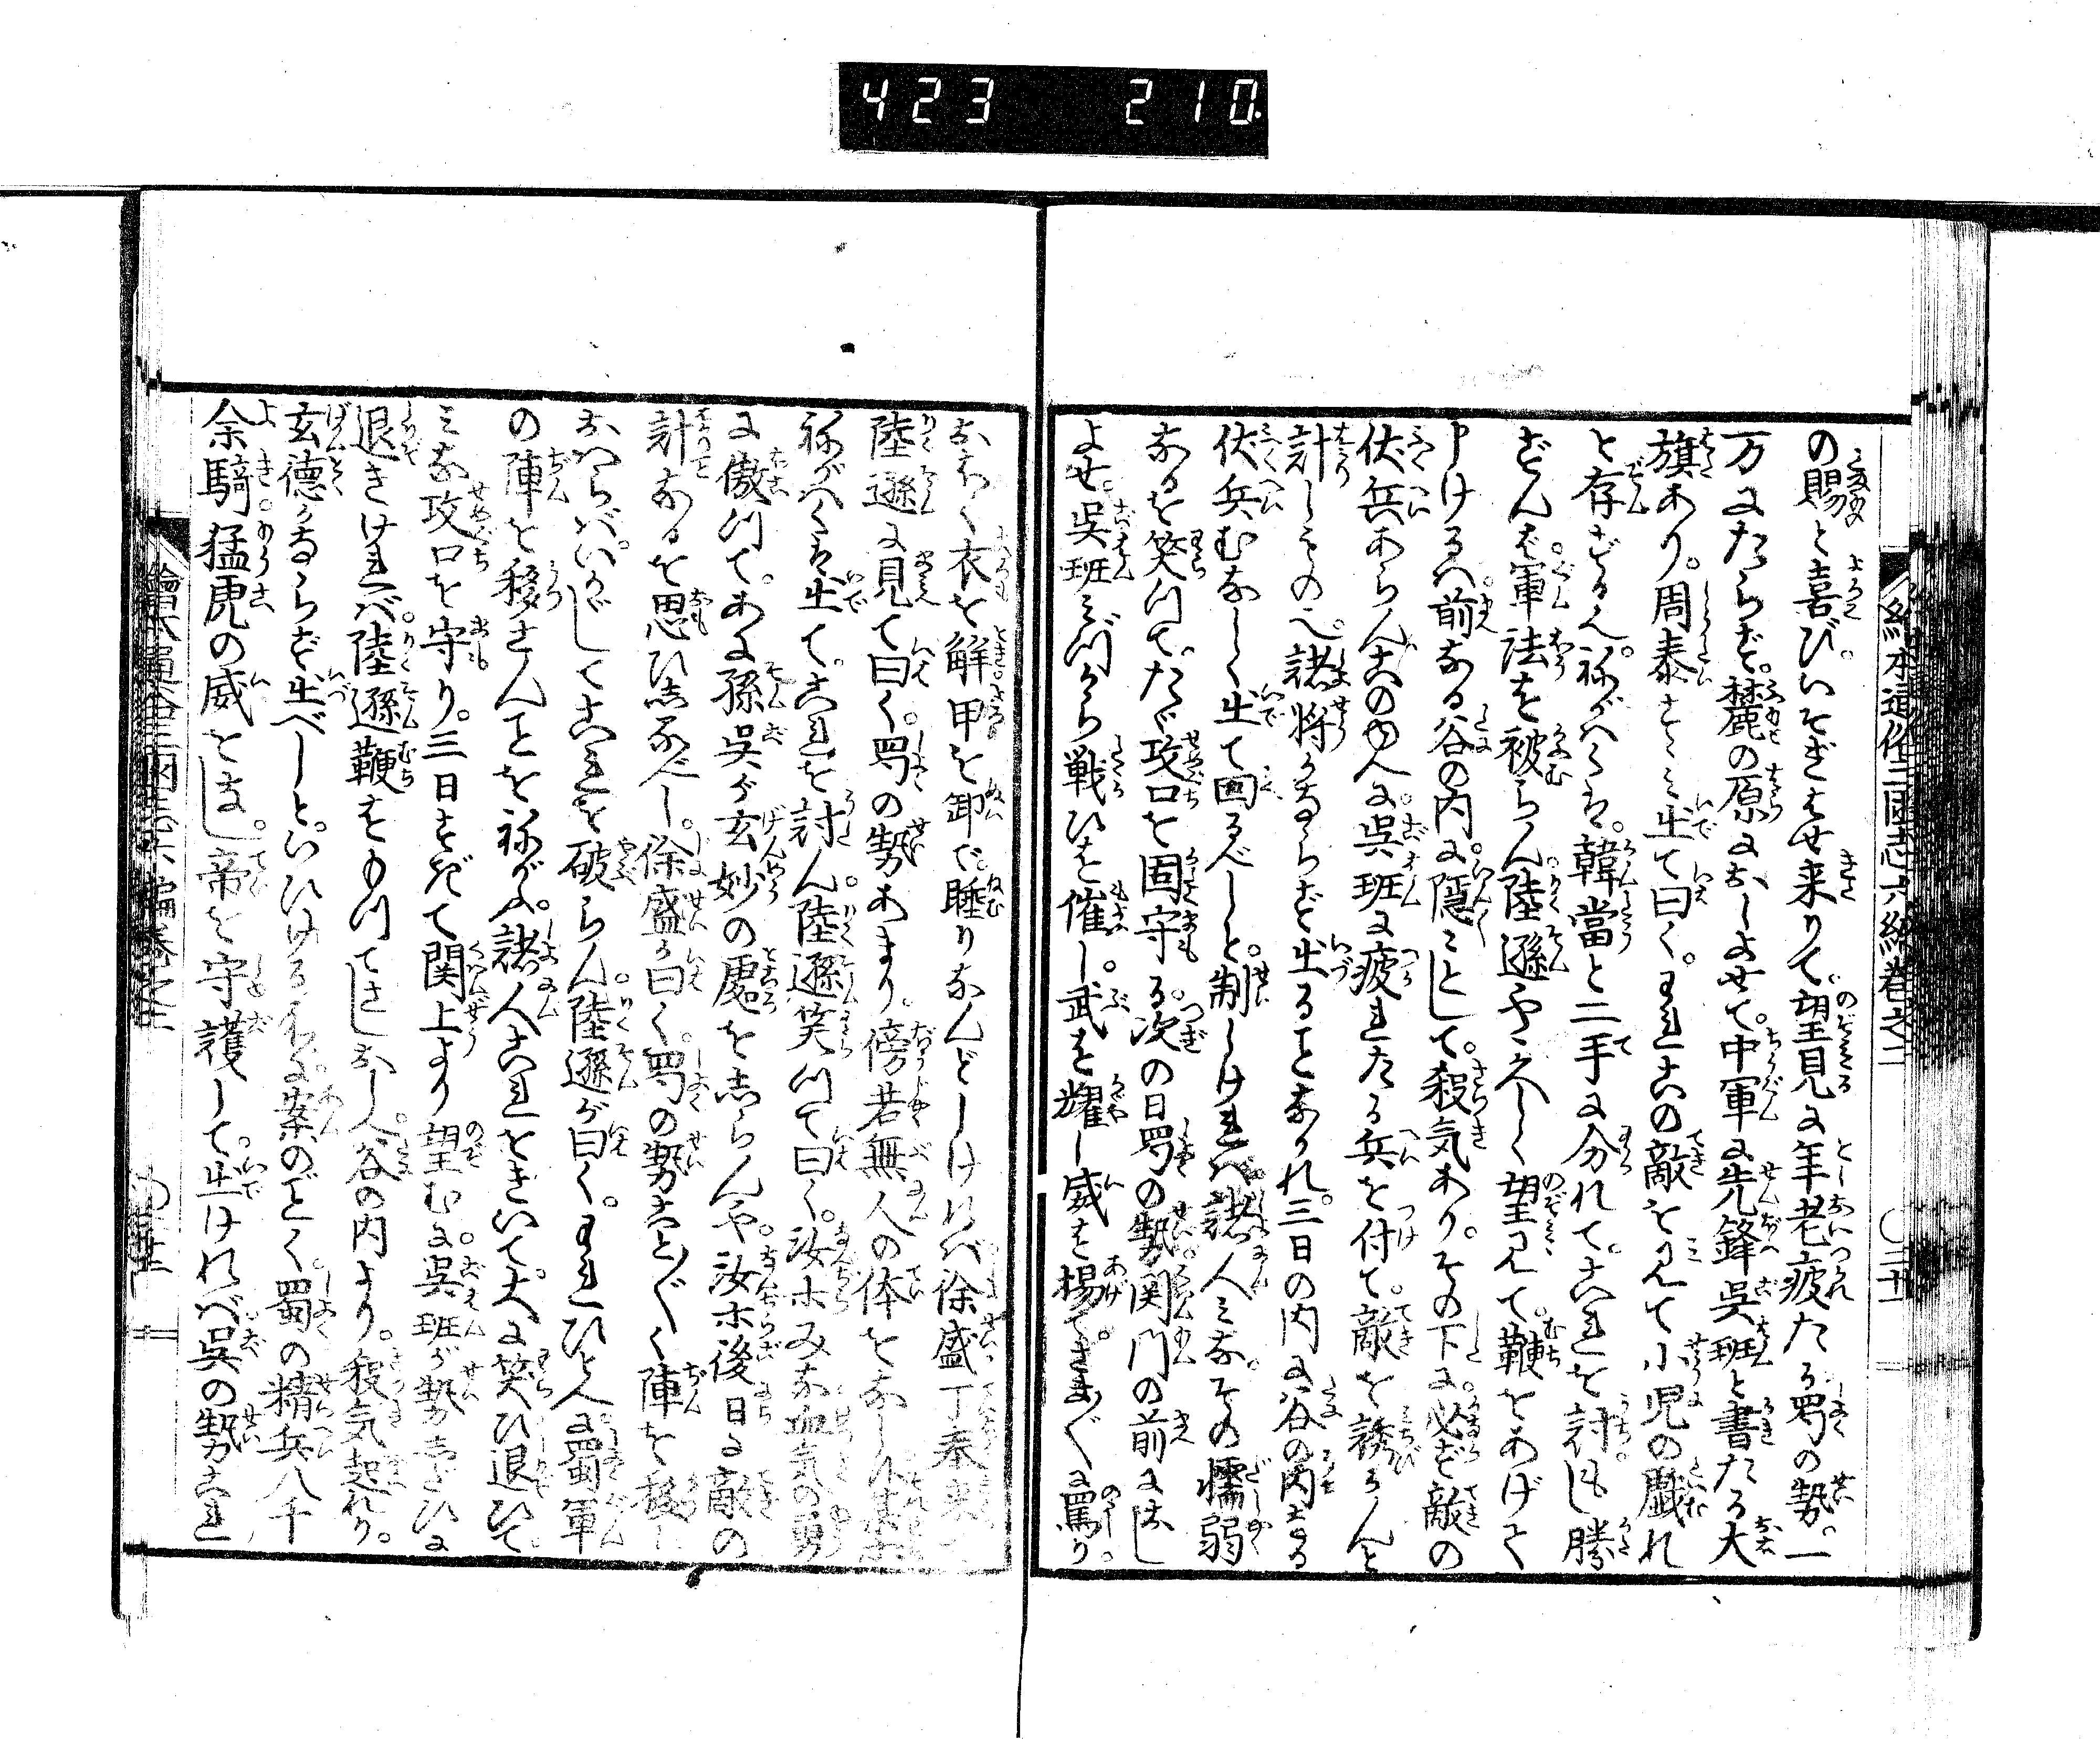 423 210.
絵本通俗三国志六編巻之二
の賜と喜び。いそぎはせ来りて。望見に年老疲たる蜀の勢。一
万にたらず。麓の原におしよせて。中軍に先鋒呉班と書たる大
旗あり。周泰すゝみ出て曰く。われこの敵を見て小児の戯れ
と存ざるへ。ねがくは。韓當と二手に分れて。これを討もし勝
ずんば。軍法を被らん。陸遜やゝ久しく望見て。鞭をあげて
申けるは。前なる谷の内に。隠〻として。殺気あり。その下に。必ず敵の
伏兵あらんこのゆへに。呉班に疲れたる兵を付て。敵を誘かんと
計しもの也。諸将かならず出ることなかれ。三日の内に谷の内なる
伏兵むなしく出て回るべしと。制しけれバ。諸人みな。その懦弱
なるを笑つて。たゞ攻口を固守る。次の日蜀の勢。関門の前に来し
よせ。呉班みづから戦ひを催し。武を耀し威を揚て。さま〴〵に罵り。
おほく衣を解甲を卸で。睡りなんどしけれバ徐盛丁奉来て
陸遜に見て曰く。蜀の勢あまり。傍若無人の体をなし候某ホ
ねがくは出て。これを討ん。陸遜笑つて曰く。汝ホみな血気の勇
に傲つて。あに孫呉が玄妙の處をしらんや。汝ホ後日に敵の
計あるを思ひ知べし。徐盛が曰く。蜀の勢こと〴〵く陣を移し
おハらバ。いかゞしてこれを破らん。陸遜が曰く。われひとへに蜀軍
の陣を移さんとを祢がふ。諸人これをきいて。大に笑ひ退ひて。
ミな攻口を守り。三日をすぎて関上より望むに。呉班が勢すでに
退きけれバ。陸遜鞭をもつてさしおしへ。谷の内より。殺気起れり。
玄徳かならず出べしと。いひけるに案のごとく。蜀の精兵八千
余騎猛虎の威をなし。帝を守護して。出けれバ呉の勢これ